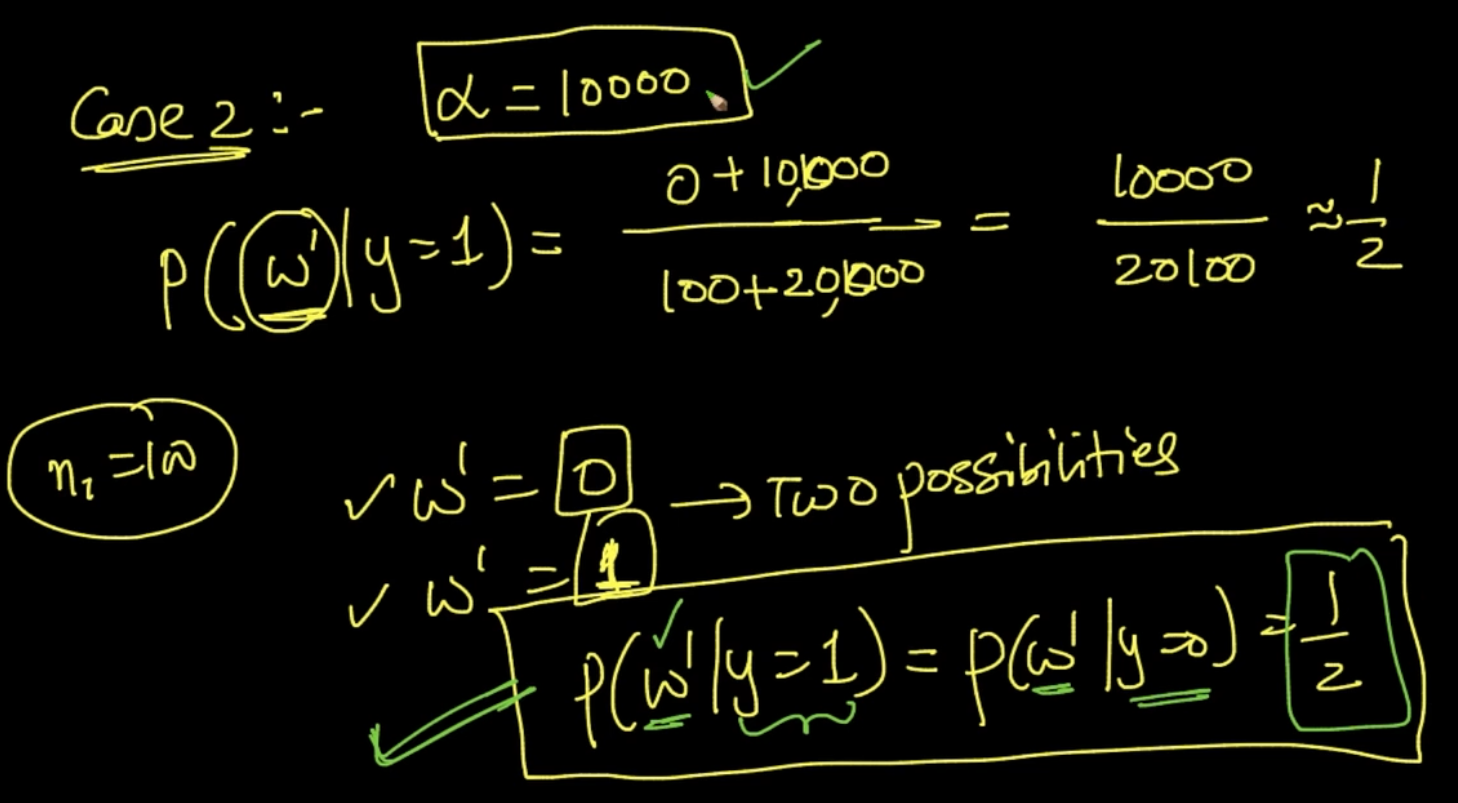 Case 2 :- α = 10000
P(w'|y=1) = (0 + 10,000)/(100 + 20,000) = 10000/20100 ≈ 1/2
n₁ = 100
✓ w' = 0 → Two possibilities
✓ w' = 1
P(w'|y=1) = P(w'|y=0) = 1/2